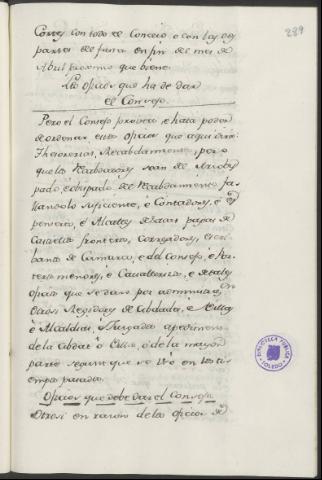 289
Cortes con todo el Concejo o con las dos
partes de fuera en fin del mes de
Abril proximo que biene.
Los oficios que ha de dar
el Consejo.
Pero el Consejo provera e hata poder
de ordenar estos oficios que aqui diran
Thesorerias, Recabdamiento, pero
que los Recabdadores sean de Arzobis
pado, e obispado del Recabdamiento fa
llandolo suficiente, e Contadores, e
e Alcaldes de sacas pagas de
Castillos fronteros, Corregidores, escri
banos de Camara, e del Consejo, e Por
teros menores, e Cavallerizo, e de tales
oficios que se davan por
Otrosi, Regidores de Cibdades, e Villas
e Alcaldias, Juzgados a pedimento
de la Cibdad o Villa, o de la mayor
parte segunt que se usó en los ti
empos pasados.
Oficios que debe dar el Consejo
Otrosi en razon de los oficios de
BIBLIOTECA PUBLICA
TOLEDO